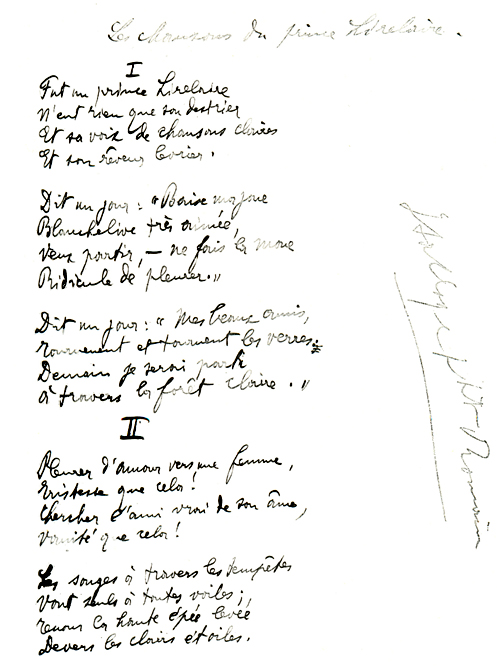 Les chansons du prince Lirelaire.
I
Fut un prince Lirelaire
N'eut rien que son destrier
Et sa voix de chansons claires
Et son rêveur levrier.
Dit un jour : "Baise ma joue
Blanchelive très aimée,
Veux partir, — ne fais la moue
Ridicule de pleurer."
Dit un jour : " Mes beaux amis,
tournent et tournent les verres.
Demain je serai parti
à travers la forêt claire. "
II
Pleurer d'amour vers une femme,
tristesse que cela !
Chercher l'ami vrai de son âme,
Vanité que cela !
Les songes à travers les tempêtes
Vont seuls à toutes voiles ;
tenons la haute épée levée
Devers les clairs étoiles.